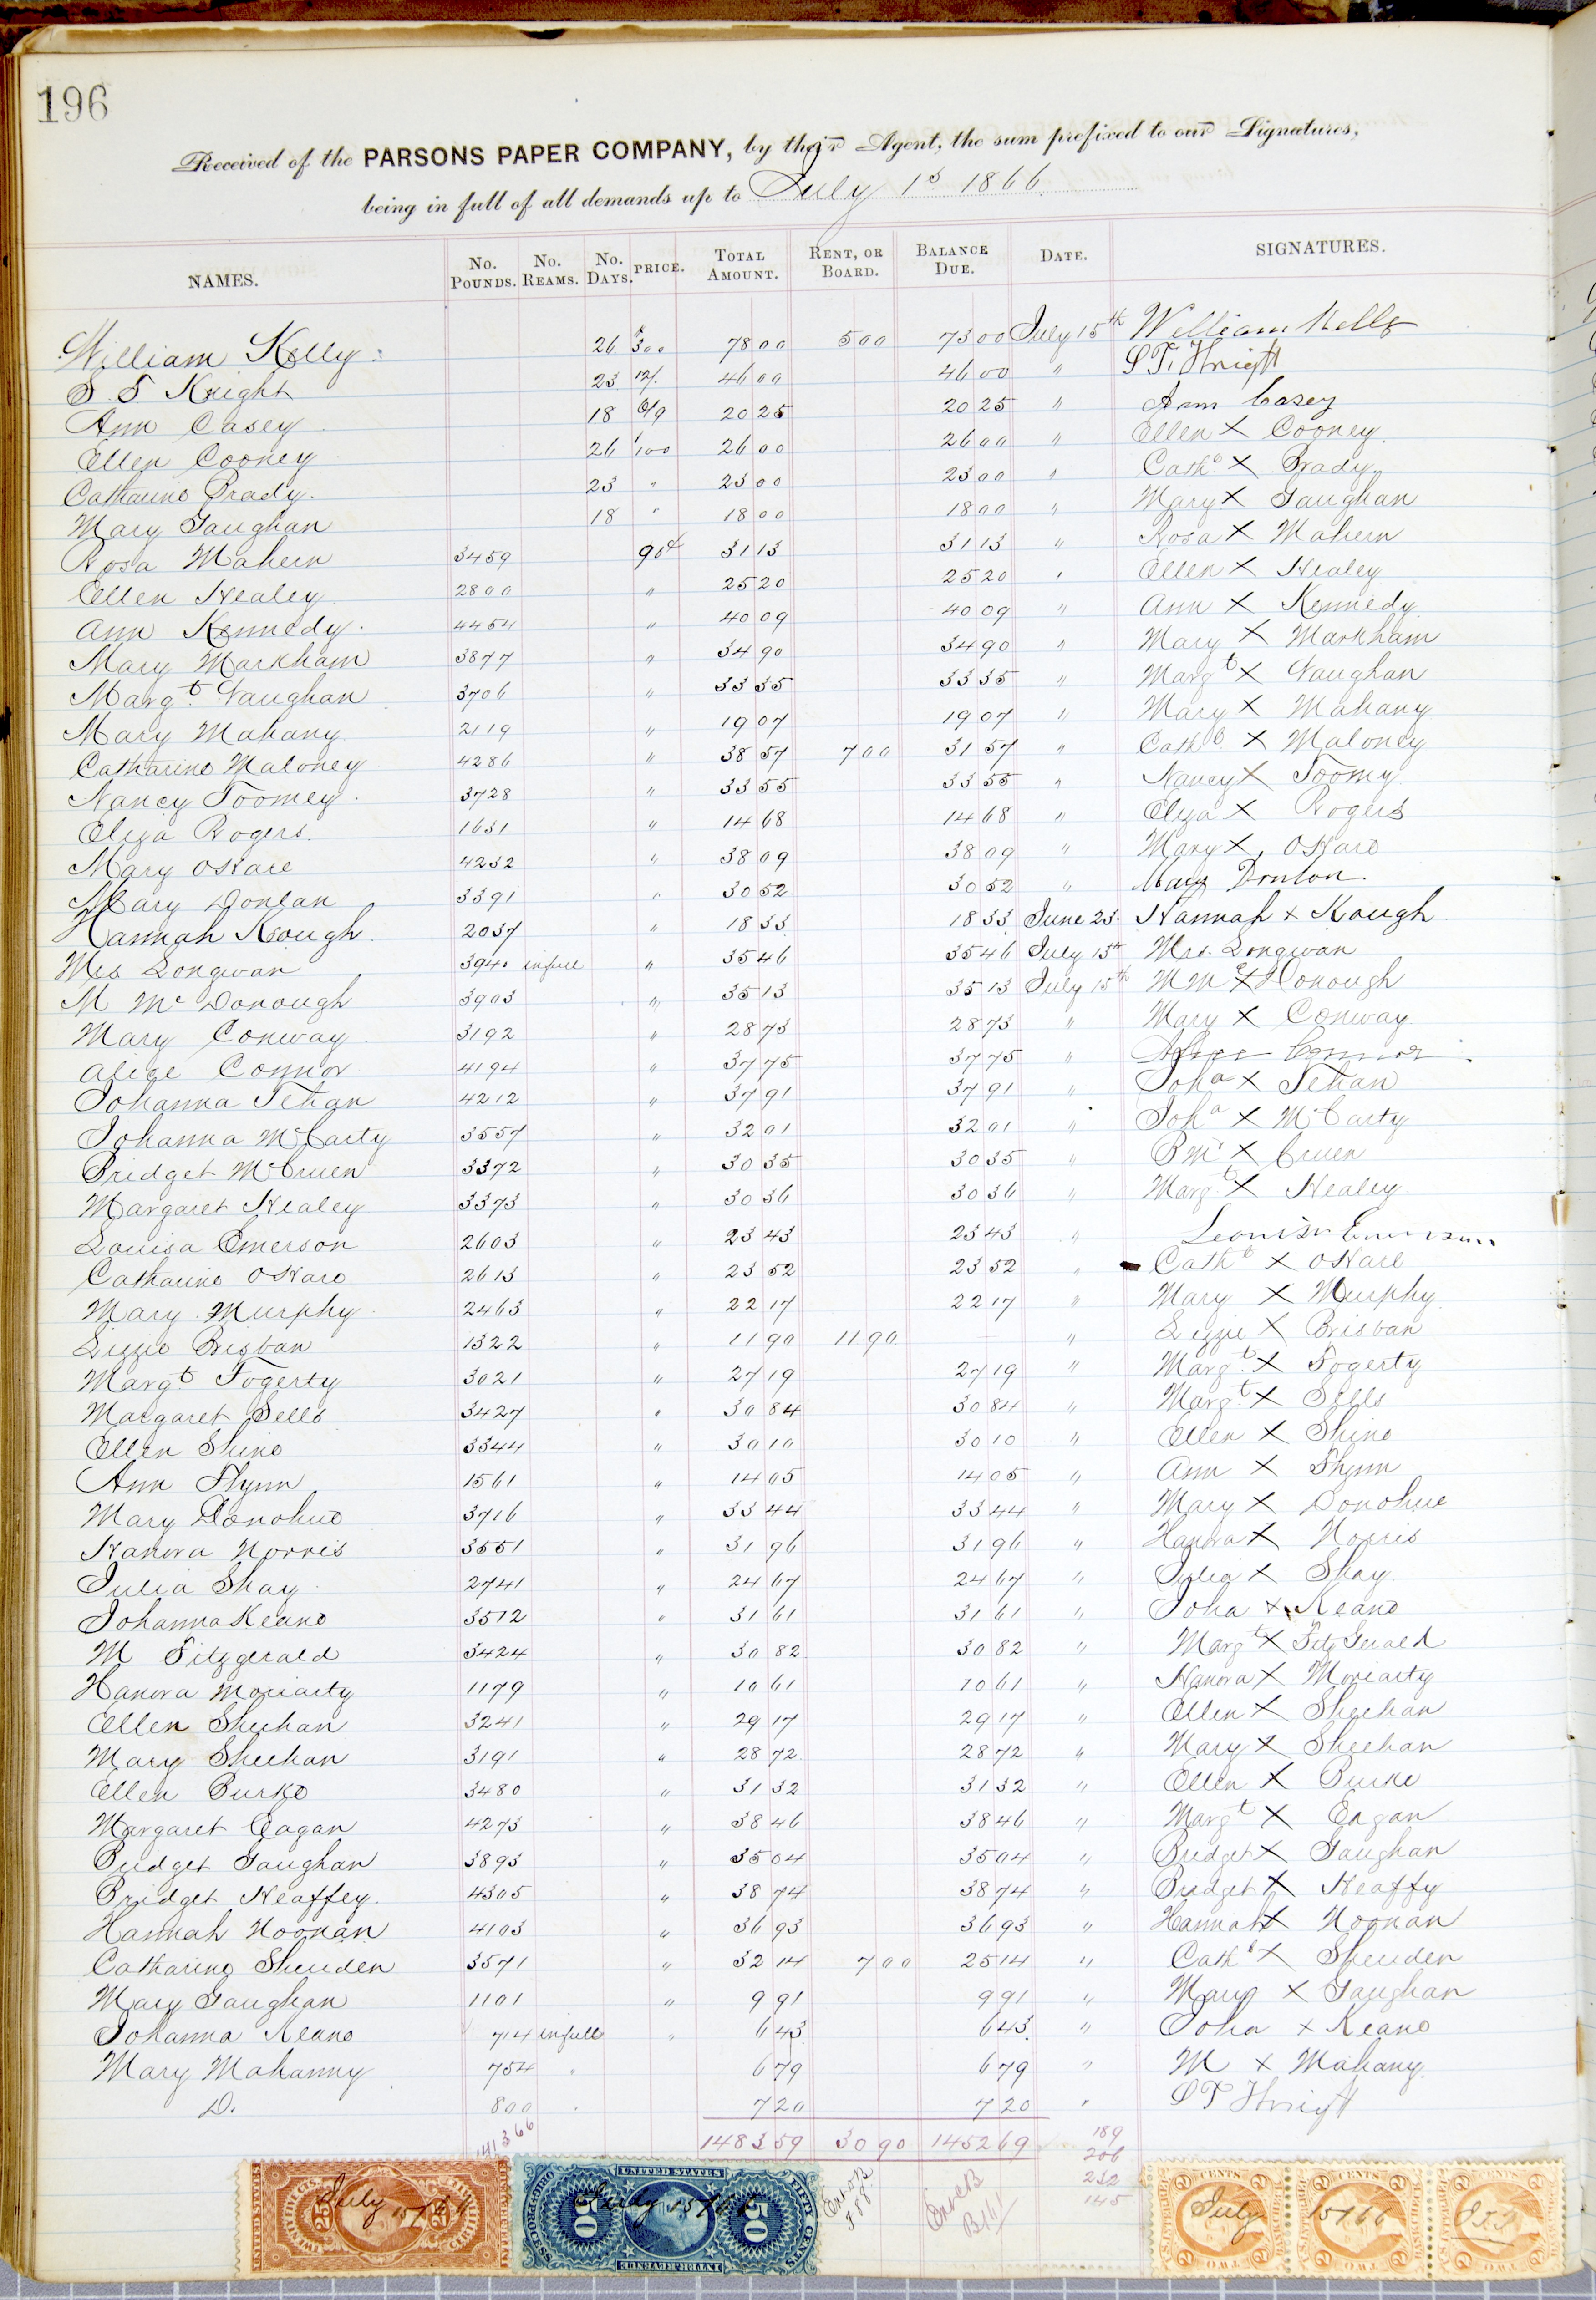 196
Received of the PARSONS PAPER COMPANY, by their Agent, the sum prefixed to our Signatures,
being in full of all demands up to July 1st 1866
NAMES. No. POUNDS. No. REAMS. No. DAYS. PRICE. TOTAL AMOUNT. RENT, OR BOARD. BALANCE DUE. DATE. SIGNATURES.
William Kelly 26 300 78 00 5 00 73 00 July 15th William Kelly
S. T Knight 23 12/. 46 00 46 00 " S. T. Knight
Ann Casey 18 6/9 20 25 20 25 " Ann Casey
Ellen Cooney 26 100 26 00 26 00 " Ellen X Cooney
Catharine Brady. 23 " 23 00 23 00 " Cathe X Brady
Mary Gaughan 18 " 18 00 18 00 " Mary X Gaughan
Rosa Mahern 3459 90¢ 31 13 31 13 " Rosa X Mahern
Ellen Healey 2800 " 25 20 25 20 " Ellen X Healey
Ann Kennedy. 4454 " 40 09 40 09 " Ann X Kennedy
Mary Markham 3877 " 34 90 34 90 " Mary X Markham
Margt. Vaughan 3706 " 33 35 33 35 " Margt X Vaughan
Mary Mahany 2119 " 19 07 19 07 " Mary X Mahany
Catharine Maloney 4286 " 38 57 7 00 31 57 " Cathe X Maloney
Nancy Toomey. 3728 " 33 55 33 55 " Nancy X Toomy
Eliza Rogers. 1631 " 14 68 14 68 " Eliza X Rogers
Mary OHare 4232 " 38 09 38 09 " Mary X OHare
Mary Donlan 3391 " 30 52 30 52 " Mary Donlon
Hannah Keough. 2037 " 18 33 18 33 June 23. Hannah X Kough
Mrs Longwan 3940 in full " 35 46 35 46 July 13th Mrs. Longwan
M McDonough 3903 " 35 13 35 13 July 15th M Mc X Donough
Mary Conway 3192 " 28 73 28 73 " Mary X Conway
Alice Connor 4194 " 37 75 37 75 " Alice Connor
Johanna Tehan 4212 " 37 91 37 91 " Joha X Tehan
Johanna McCarty 3557 " 32 01 32 01 " Joha X McCarty
Bridget McCruen 3372 " 30 35 30 35 " B Mc X Cruen
Margaret Healey 3373 " 30 36 30 36 " Margt X Healey
Louisa Emerson 2603 " 23 43 23 43 " Louisa Emerson
Catharine OHare 2613 " 23 52 23 52 " Cathe X OHare
Mary Murphy 2463 " 22 17 22 17 " Mary X Murphy
Lizzie Brisban 1322 " 11 90 11 90 " Lizzie X Brisban
Margt. Fogerty 3021 " 27 19 27 19 " Margt. X Fogerty
Margaret Sells 3427 " 30 84 30 84 " Margt. X Sells
Ellen Shine 3344 " 30 10 30 10 " Ellen X Shine
Ann Flynn 1561 " 14 05 14 05 " Ann X Flynn
Mary Donohue 3716 " 33 44 33 44 " Mary X Donohue
Hanora Norris 3551 " 31 96 31 96 " Hanora X Norris
Julia Shay 2741 " 24 67 24 67 " Julia X Shay
Johanna Keane 3512 " 31 61 31 61 " Joha X Keane
M Fitzgerald 3424 " 30 82 30 82 " Margt X FitzGerald
Hanora Moriarty 1179 " 10 61 10 61 " Hanora X Moriarty
Ellen Sheehan 3241 " 29 17 29 17 " Ellen X Sheehan
Mary Sheehan 3191 " 28 72 28 72 " Mary X Sheehan
Ellen Burke 3480 " 31 32 31 32 " Ellen X Burke
Margaret Eagan 4273 " 38 46 38 46 " Margt X Eagan
Bridget Gaughan 3893 " 35 04 35 04 " Bridget X Gaughan
Bridget Heaffey. 4305 " 38 74 38 74 " Bridget X Heaffy
Hannah Noonan 4103 " 36 93 36 93 " Hannah X Noonan
Catharine Shuuden 3571 " 32 14 7 00 25 14 " Cathe X Shuuden
Mary Gaughan 1101 " 9 91 9 91 " Mary X Gaughan
Johanna Keane 714 in full " 6 43 6 43 " Joha X Keane
Mary Mahanny 754 " 6 79 6 79 " M X Mahany
D. 800 " 7 20 7 20 " S T Knight
141366 1483 59 30 90 1452 69 189
206
232
145
July 15/66
July 15/66
July 15/66
UNITED STATES
FIFTY CENTS
50 50
25 25
UNITED STATES
CENTS
2 2
TWO